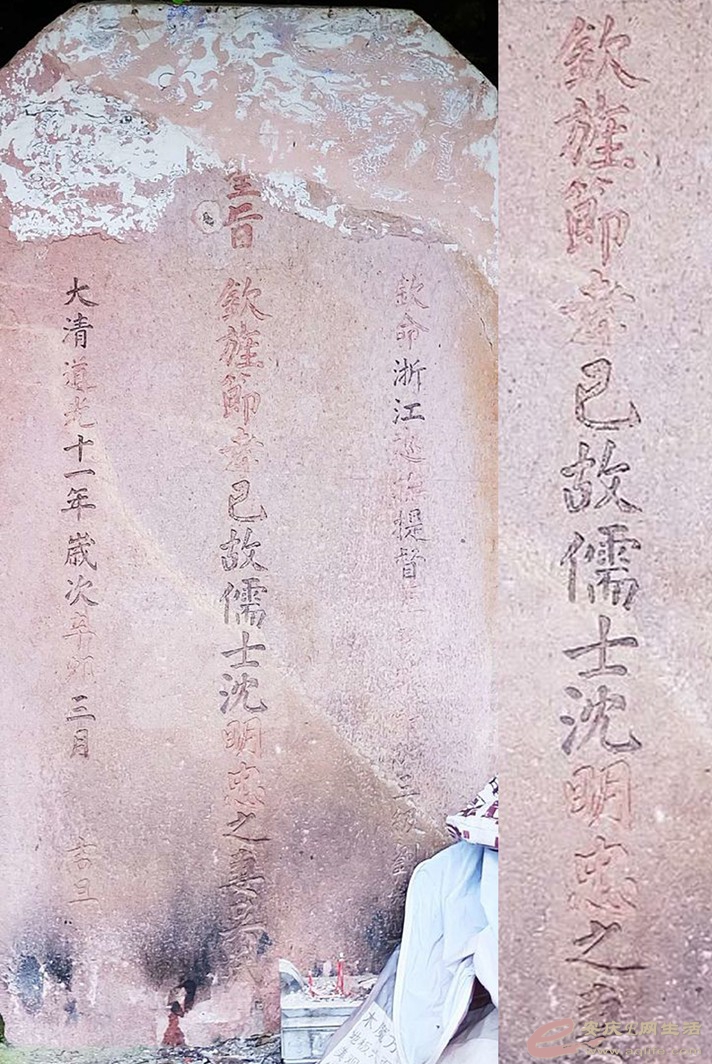 欽命浙江巡撫提督
三級
聖旨
欽旌節孝已故儒士沈明忠之妻
大清道光十一年歲次辛卯三月
吉旦
欽旌節孝已故儒士沈明忠之妻
安庆E网生活